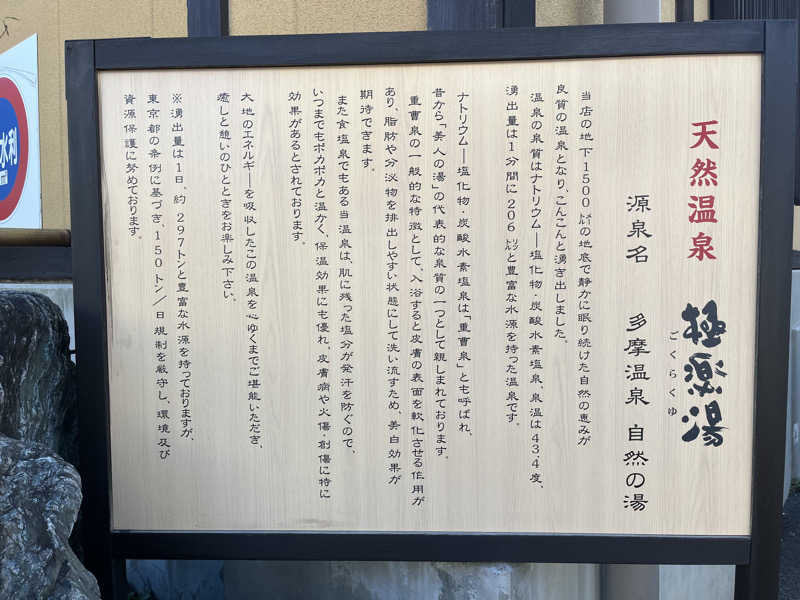 天然温泉 極楽湯
ごくらくゆ
源泉名 多摩温泉 自然の湯
当店の地下1500㍍の地底で静かに眠り続けた自然の恵みが
良質の温泉となり、こんこんと湧き出しました。
温泉の泉質はナトリウム―塩化物・炭酸水素塩泉、泉温は43.4度、
湧出量は1分間に206㍑と豊富な水源を持った温泉です。
ナトリウム―塩化物・炭酸水素塩泉は「重曹泉」とも呼ばれ、
昔から「美人の湯」の代表的な泉質の一つとして親しまれております。
重曹泉の一般的な特徴として、入浴すると皮膚の表面を軟化させる作用が
あり、脂肪や分泌物を排出しやすい状態にして洗い流すため、美白効果が
期待できます。
また食塩泉でもある当温泉は、肌に残った塩分が発汗を防ぐので、
いつまでもポカポカと温かく、保温効果にも優れ、皮膚病や火傷・創傷に特に
効果があるとされております。
大地のエネルギーを吸収したこの温泉を心ゆくまでご堪能いただき、
癒しと憩いのひとときをお楽しみ下さい。
※湧出量は1日、約297トンと豊富な水源を持っておりますが、
東京都の条例に基づき、150トン/日規制を厳守し、環境及び
資源保護に努めております。
水利